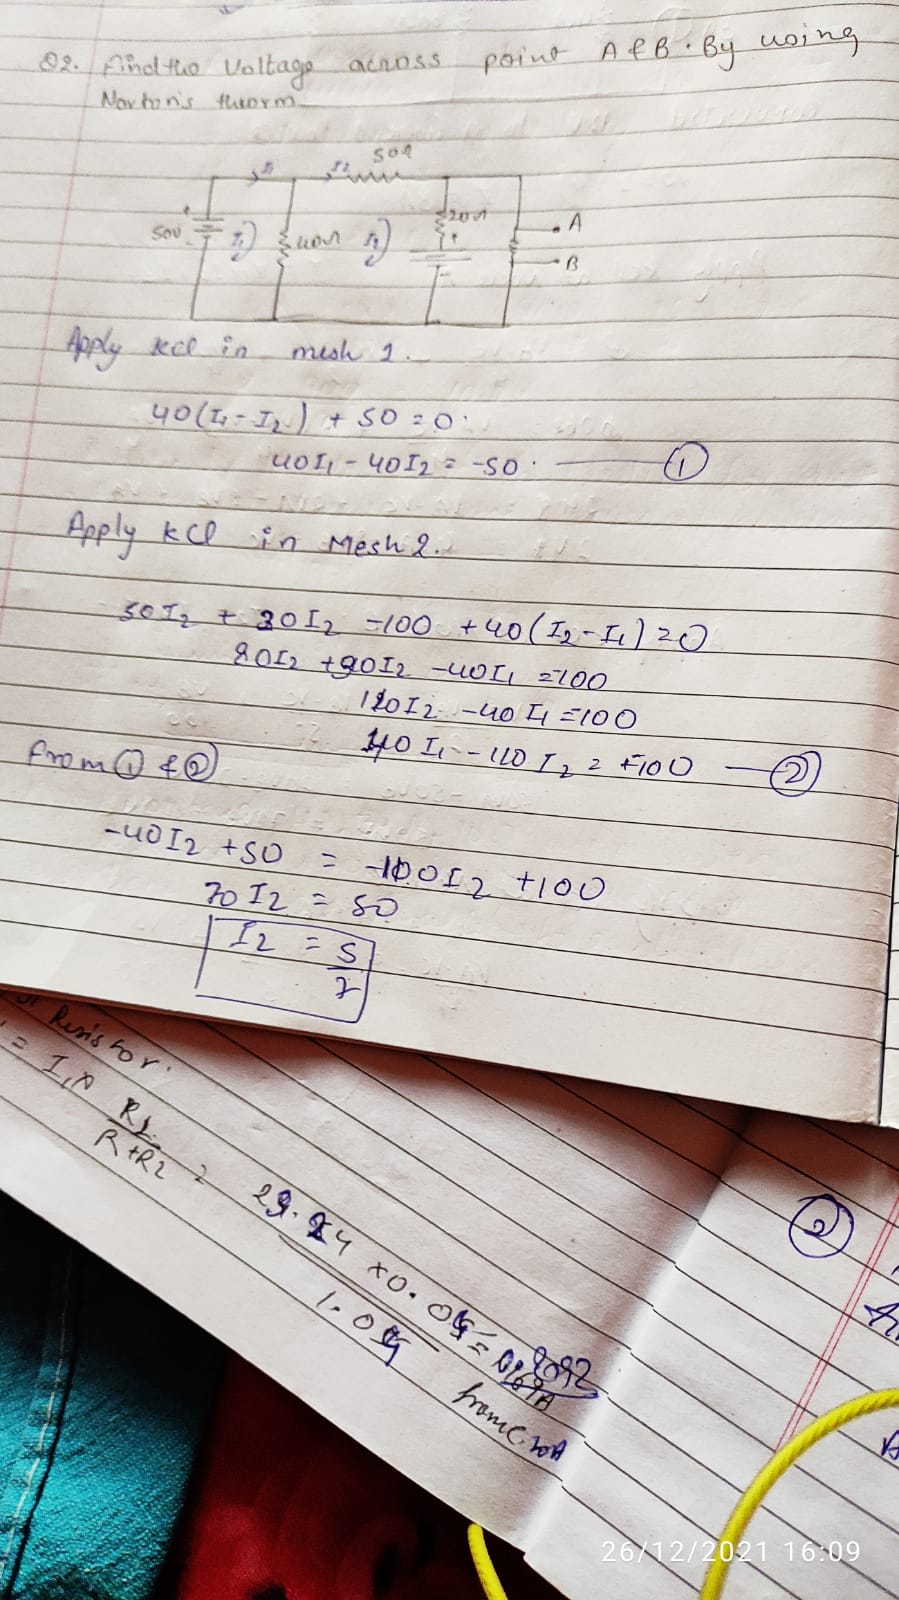 Q2. Find the Voltage across point A & B. By using
Norton's theorm
50Ω
I1
I2
50V
I1
40Ω
I2
20Ω
+
-
A
B
Apply kcl in mesh 1.
40(I1-I2) + 50 = 0
40I1 - 40I2 = -50. ①
Apply kCl in Mesh 2.
50I2 + 20I2 -100 + 40(I2-I1) = 0
-40I1 = 100
110I2 - 40I1 = 100
40I1 - 110I2 = -100 ②
from ① & ②
-40I2 + 50 = -110I2 + 100
70I2 = 50
I2 = 5/7
Resistor.
= I1 × R2/(R+R2) =
from C to A
②
26/12/2021 16:09